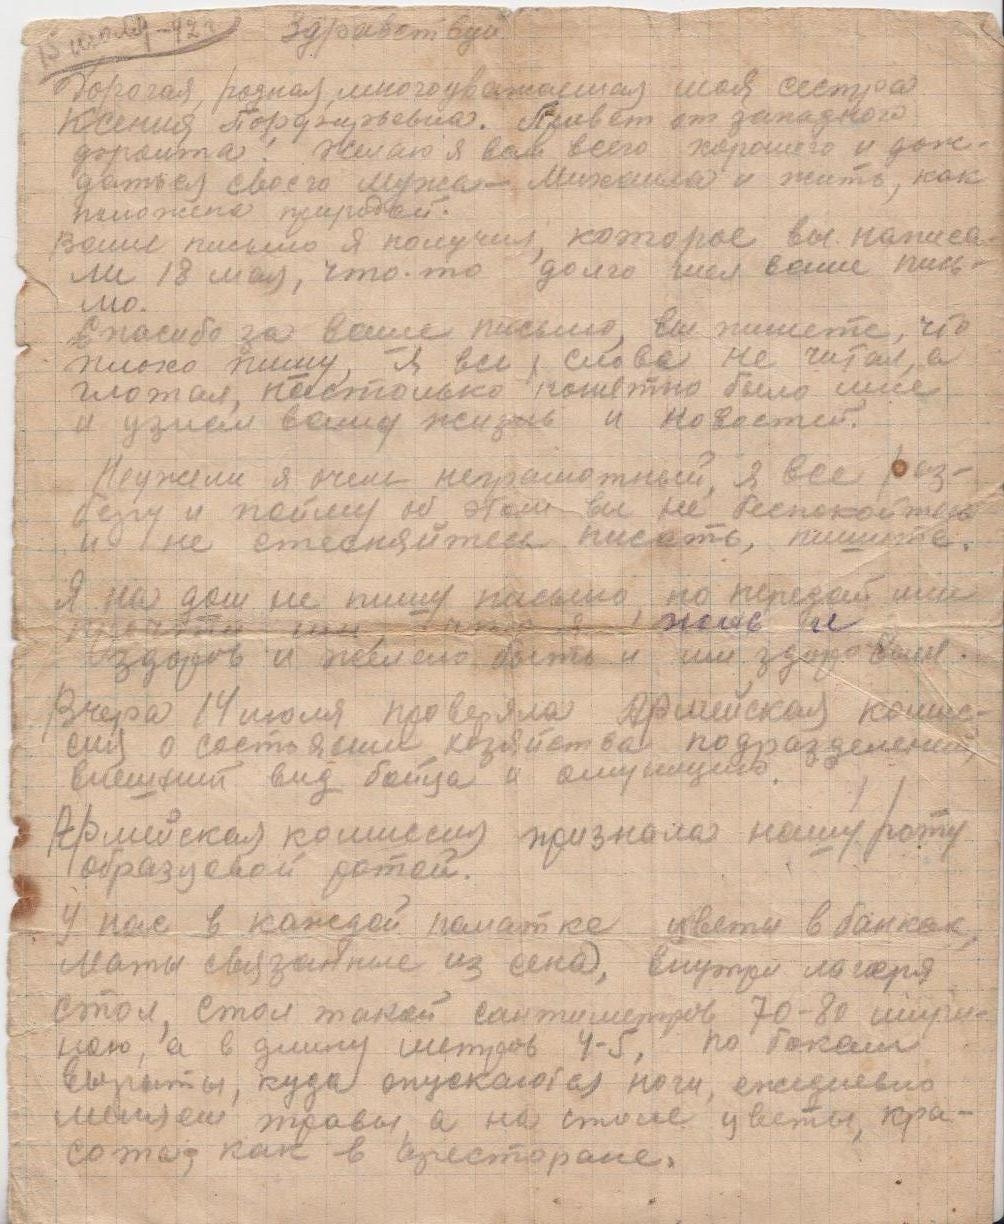 15 июля-42 г Здравствуй
Дорогая, родная, многоуважаемая моя сестра
Ксения Порфирьевна. Привет от западного
фронта! Желаю я вам всего хорошего и дож-
даться своего мужа - Михаила и жить, как
положено природой.
Ваше письмо я получил, которое вы написа-
ли 18 мая, что-то долго шел ваше пись-
мо.
Спасибо за ваше письмо, вы пишете, что
плохо пишу, Я все слова не читал, а
глотал, настолько было мне
и узнал вашу жизнь и новостей.
Неужели я очень неграмотный, я все раз-
беру и пойму об этом вы не беспокойтесь
и не стесняйтесь писать, пишите.
Я на дом не пишу письмо, но передай им
что я жив и
здоров и желаю быть и им здоровыми.
Вчера 14 июля проверяла Армейская комис-
сия о состьянии хозяйства подразделений,
внешний вид бойца и амуницию.
Армейская комиссия признала нашу роту
образцовой ротой.
У нас в каждой палатке цветы в банках,
маты связанные из сена, внутри лагеря
стол, стол такой сантиметров 70-80 шири-
ною, а в длину метров 4-5, по бокам
вырыты, куда опускаются ноги, ежедневно
меняем травы, а на столе цветы, кра-
сота, как в ресторане.